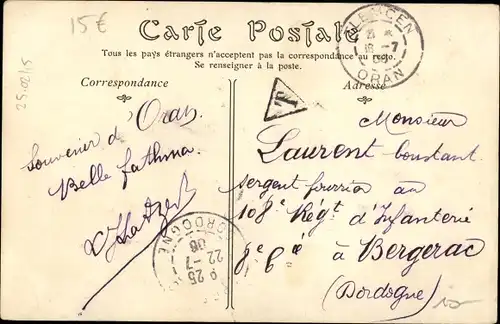 15€
Carte Postale
Tous les pays étrangers n'acceptent pas la correspondance au recto.
Se renseigner à la poste.
Correspondance
Adresse
TLEMCEN
18 -7
ORAN
T
25/02/15
Souvenir d'Oran
Belle fathma
Monsieur
Laurent Constant
sergent fourrier au
108e Régt d'Infanterie
8e Cie à Bergerac
(Dordogne)
DORDOGNE
9 25
22 -7
08